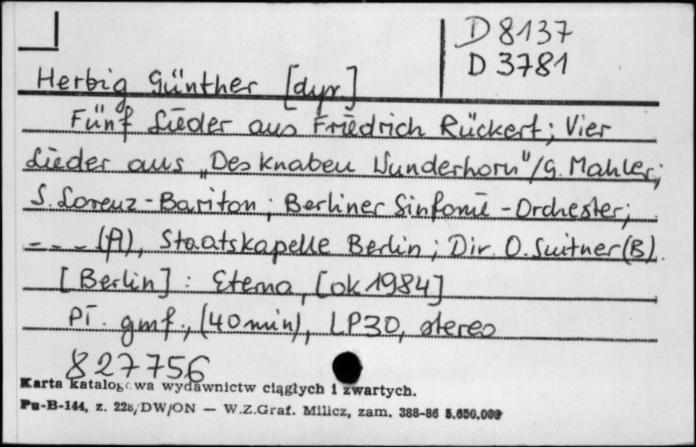 D 8137
D 3781
Herbig Günther [dyr.]
Fünf Lieder aus Friedrich Rückert; Vier
Lieder aus „Des Knaben Wunderhorn"/G. Mahler;
S. Lorenz - Bariton; Berliner Sinfonie - Orchester;
- - - (A), Staatskapelle Berlin; Dir. O. Suitner (B).
[Berlin] : Eterna, [ok 1984]
Pł. gmf., (40 min), LP30, stereo
827756
Karta katalogowa wydawnictw ciągłych i zwartych.
Pu-B-144, z. 228/DW/ON — W.Z.Graf. Milicz, zam. 388-86 5.650.000